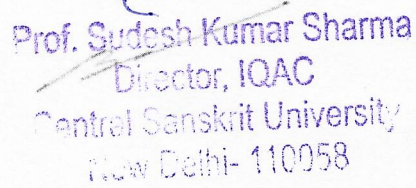 Prof. Sudesh Kumar Sharma
Director, IQAC
Central Sanskrit University
New Delhi- 110058